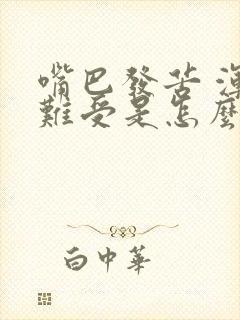 嘴巴發苦
難受是怎麼
白中華